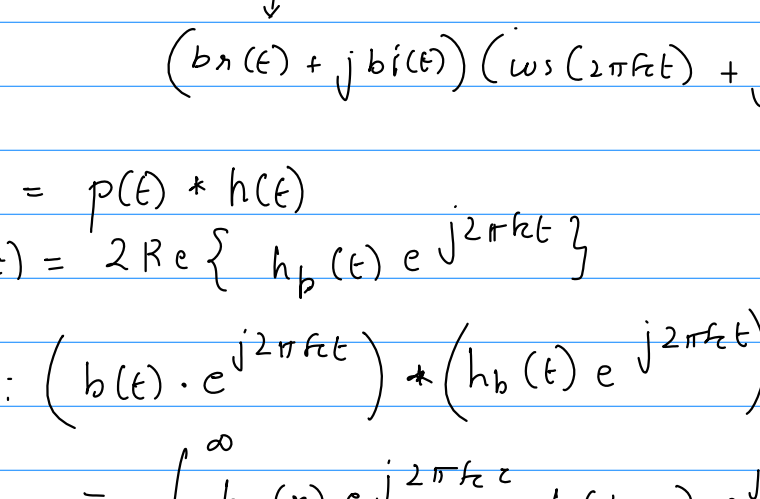 (br(t) + j bi(t)) (cos(2πfct) +
= p(t) * h(t)
t) = 2Re{ h_b(t) e^{j2πfct} }
: (b(t) · e^{j2πfct}) * (h_b(t) e^{j2πfct})
= ∫^∞ e^{j2πfcτ}